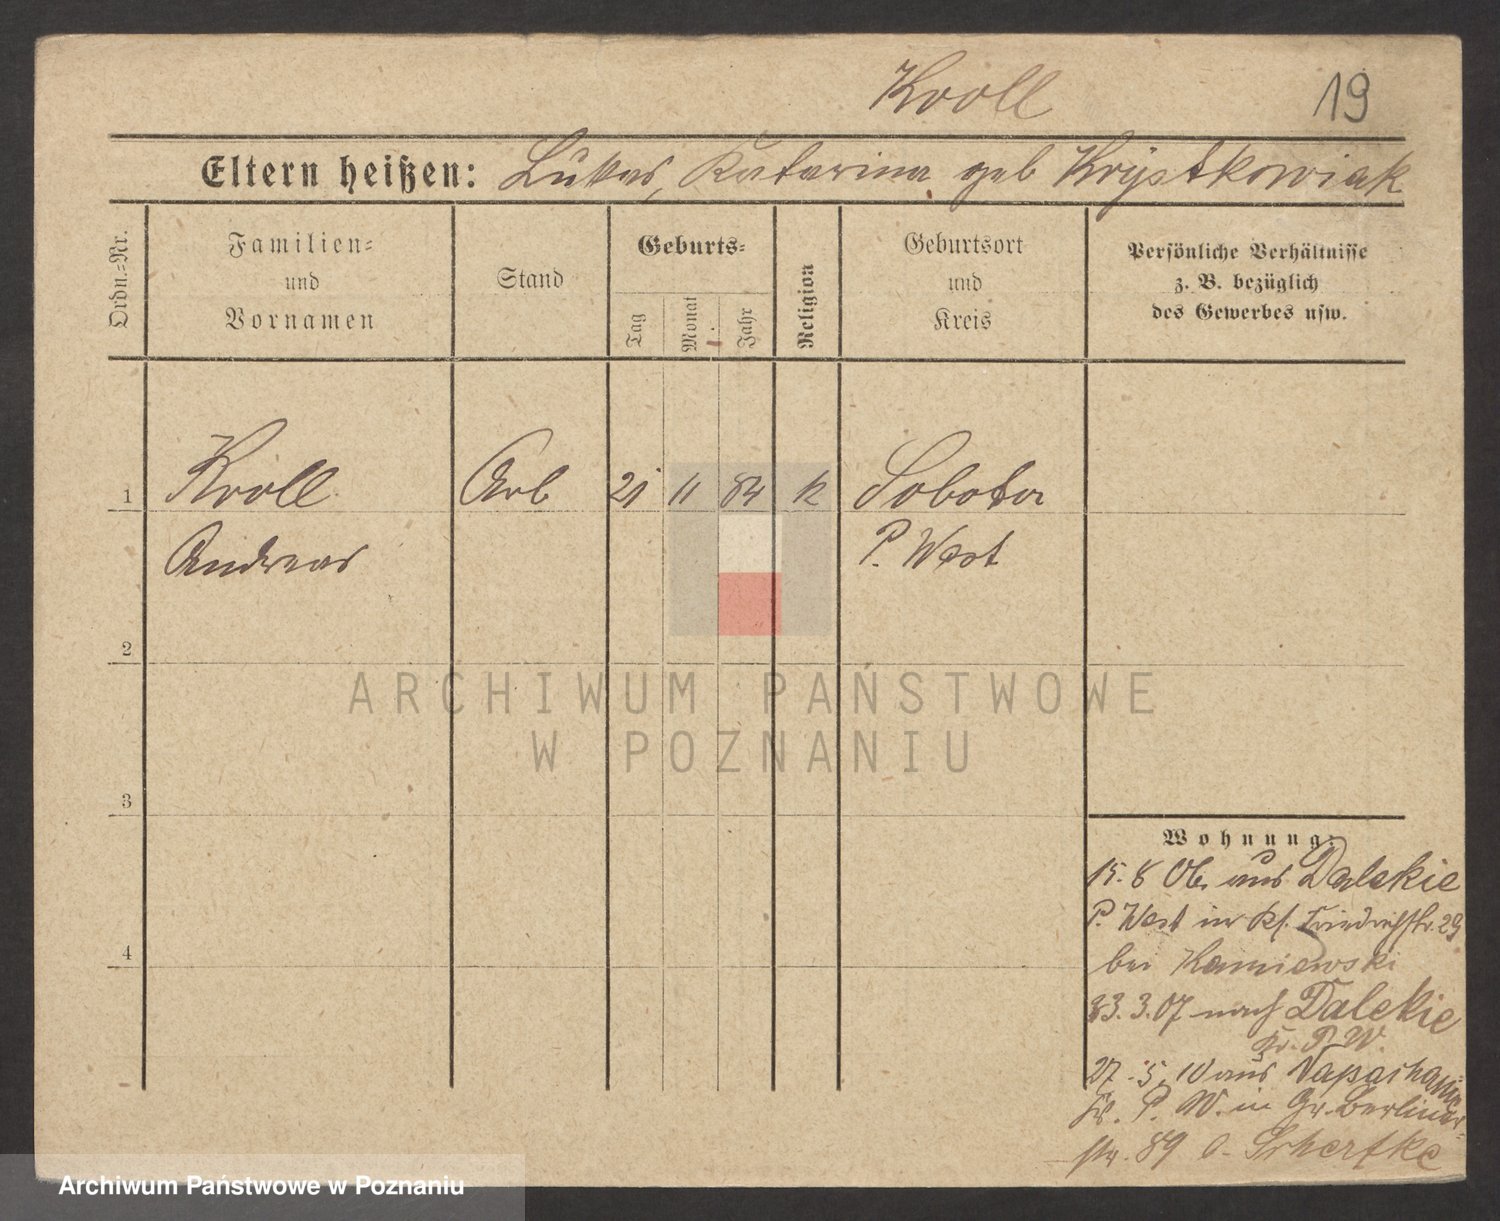 Kroll
19
Eltern heißen: Lukas, Katarina geb Krystkowiak
Ordn.-Nr.
Familien-
und
Vornamen
Stand
Geburts-
Tag
Monat
Jahr
Religion
Geburtsort
und
Kreis
Persönliche Verhältnisse
z. B. bezüglich
des Gewerbes usw.
1
Kroll
Arb
21
11
84
k
Sobota
Andreas
P. West
2
ARCHIWUM PAŃSTWOWE
W POZNANIU
3
Wohnung:
15. 8 06 aus Dalekie
P. West in Friedrichstr. 29
4
bei Kamiewski
3. 07 nach Dalekie
Kr. P. W.
27. 5. 10 aus
Kr. P. W. in Gr. Berliner-
str. 89 Scherfke
Archiwum Państwowe w Poznaniu